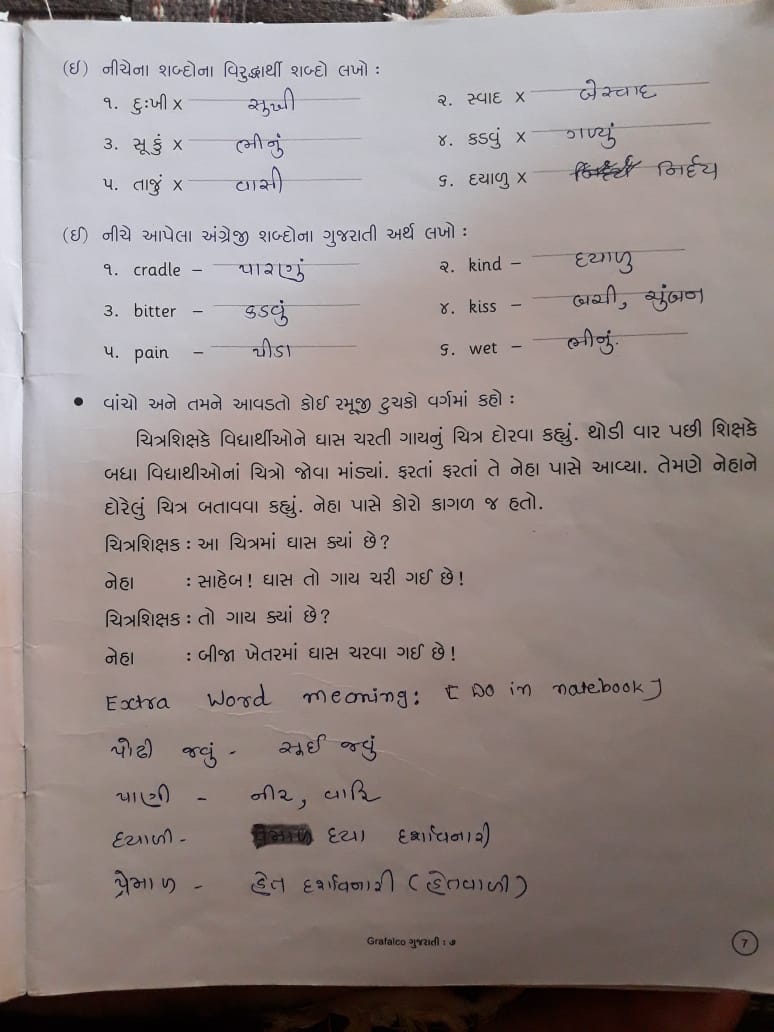 (ઈ) નીચેના શબ્દોના વિરુદ્ધાર્થી શબ્દો લખો :
૧. દુઃખી × સુખી ૨. સ્વાદ × બેસ્વાદ
૩. સૂકું × ભીનું ૪. કડવું × ગળ્યું
૫. તાજું × વાસી ૬. દયાળુ × નિર્દય
(ઈ) નીચે આપેલા અંગ્રેજી શબ્દોના ગુજરાતી અર્થ લખો :
૧. cradle – પારણું ૨. kind – દયાળુ
૩. bitter – કડવું ૪. kiss – બચી, ચુંબન
૫. pain – પીડા ૬. wet – ભીનું.
• વાંચો અને તમને આવડતો કોઈ રમૂજી ટુચકો વર્ગમાં કહો :
ચિત્રશિક્ષકે વિદ્યાર્થીઓને ઘાસ ચરતી ગાયનું ચિત્ર દોરવા કહ્યું. થોડી વાર પછી શિક્ષકે
બધા વિદ્યાથીઓનાં ચિત્રો જોવા માંડ્યાં. ફરતાં ફરતાં તે નેહા પાસે આવ્યા. તેમણે નેહાને
દોરેલું ચિત્ર બતાવવા કહ્યું. નેહા પાસે કોરો કાગળ જ હતો.
ચિત્રશિક્ષક : આ ચિત્રમાં ઘાસ ક્યાં છે?
નેહા : સાહેબ! ઘાસ તો ગાય ચરી ગઈ છે!
ચિત્રશિક્ષક : તો ગાય ક્યાં છે?
નેહા : બીજા ખેતરમાં ઘાસ ચરવા ગઈ છે!
Extra Word meaning: [Do in notebook]
પોઢી જવું - સૂઈ જવું
પાણી - નીર, વારિ
દયાળી - દયા દર્શાવનારી
પ્રેમાળ - હેત દર્શાવનારી (હેતવાળી)
Grafalco ગુજરાતી : ૭ 7